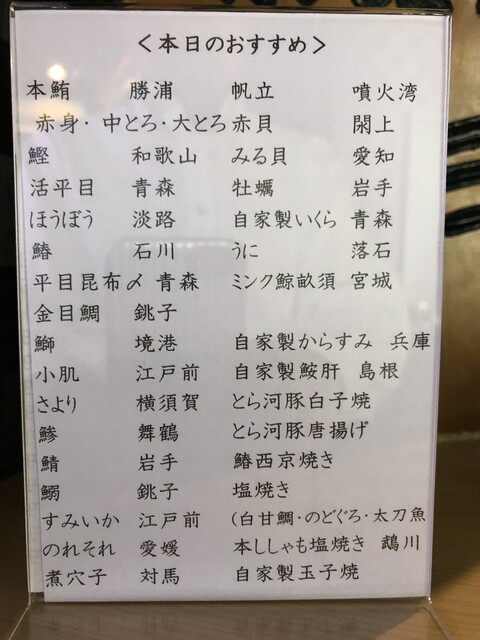 ＜本日のおすすめ＞
本鮪 勝浦 帆立 噴火湾
赤身・中とろ・大とろ 赤貝 閖上
鰹 和歌山 みる貝 愛知
活平目 青森 牡蠣 岩手
ほうぼう 淡路 自家製いくら 青森
鰆 石川 うに 落石
平目昆布〆 青森 ミンク鯨畝須 宮城
金目鯛 銚子
鰤 境港 自家製からすみ 兵庫
小肌 江戸前 自家製鮟肝 島根
さより 横須賀 とら河豚白子焼
鯵 舞鶴 とら河豚唐揚げ
鯖 岩手 鰆西京焼き
鰯 銚子 塩焼き
すみいか 江戸前 (白甘鯛・のどぐろ・太刀魚
のれそれ 愛媛 本ししゃも塩焼き 鵡川
煮穴子 対馬 自家製玉子焼